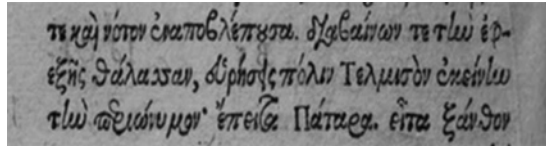 τε καὶ νότον ἐναποβλέπουσα. διαβαίνων τε τὴν ἐφ-
εξῆς θάλασσαν, εὑρήσεις πόλιν Τελμισὸν ἐκείνην
τὴν περιώνυμον· ἔπειτα Πάταρα. εἶτα ξάνθον